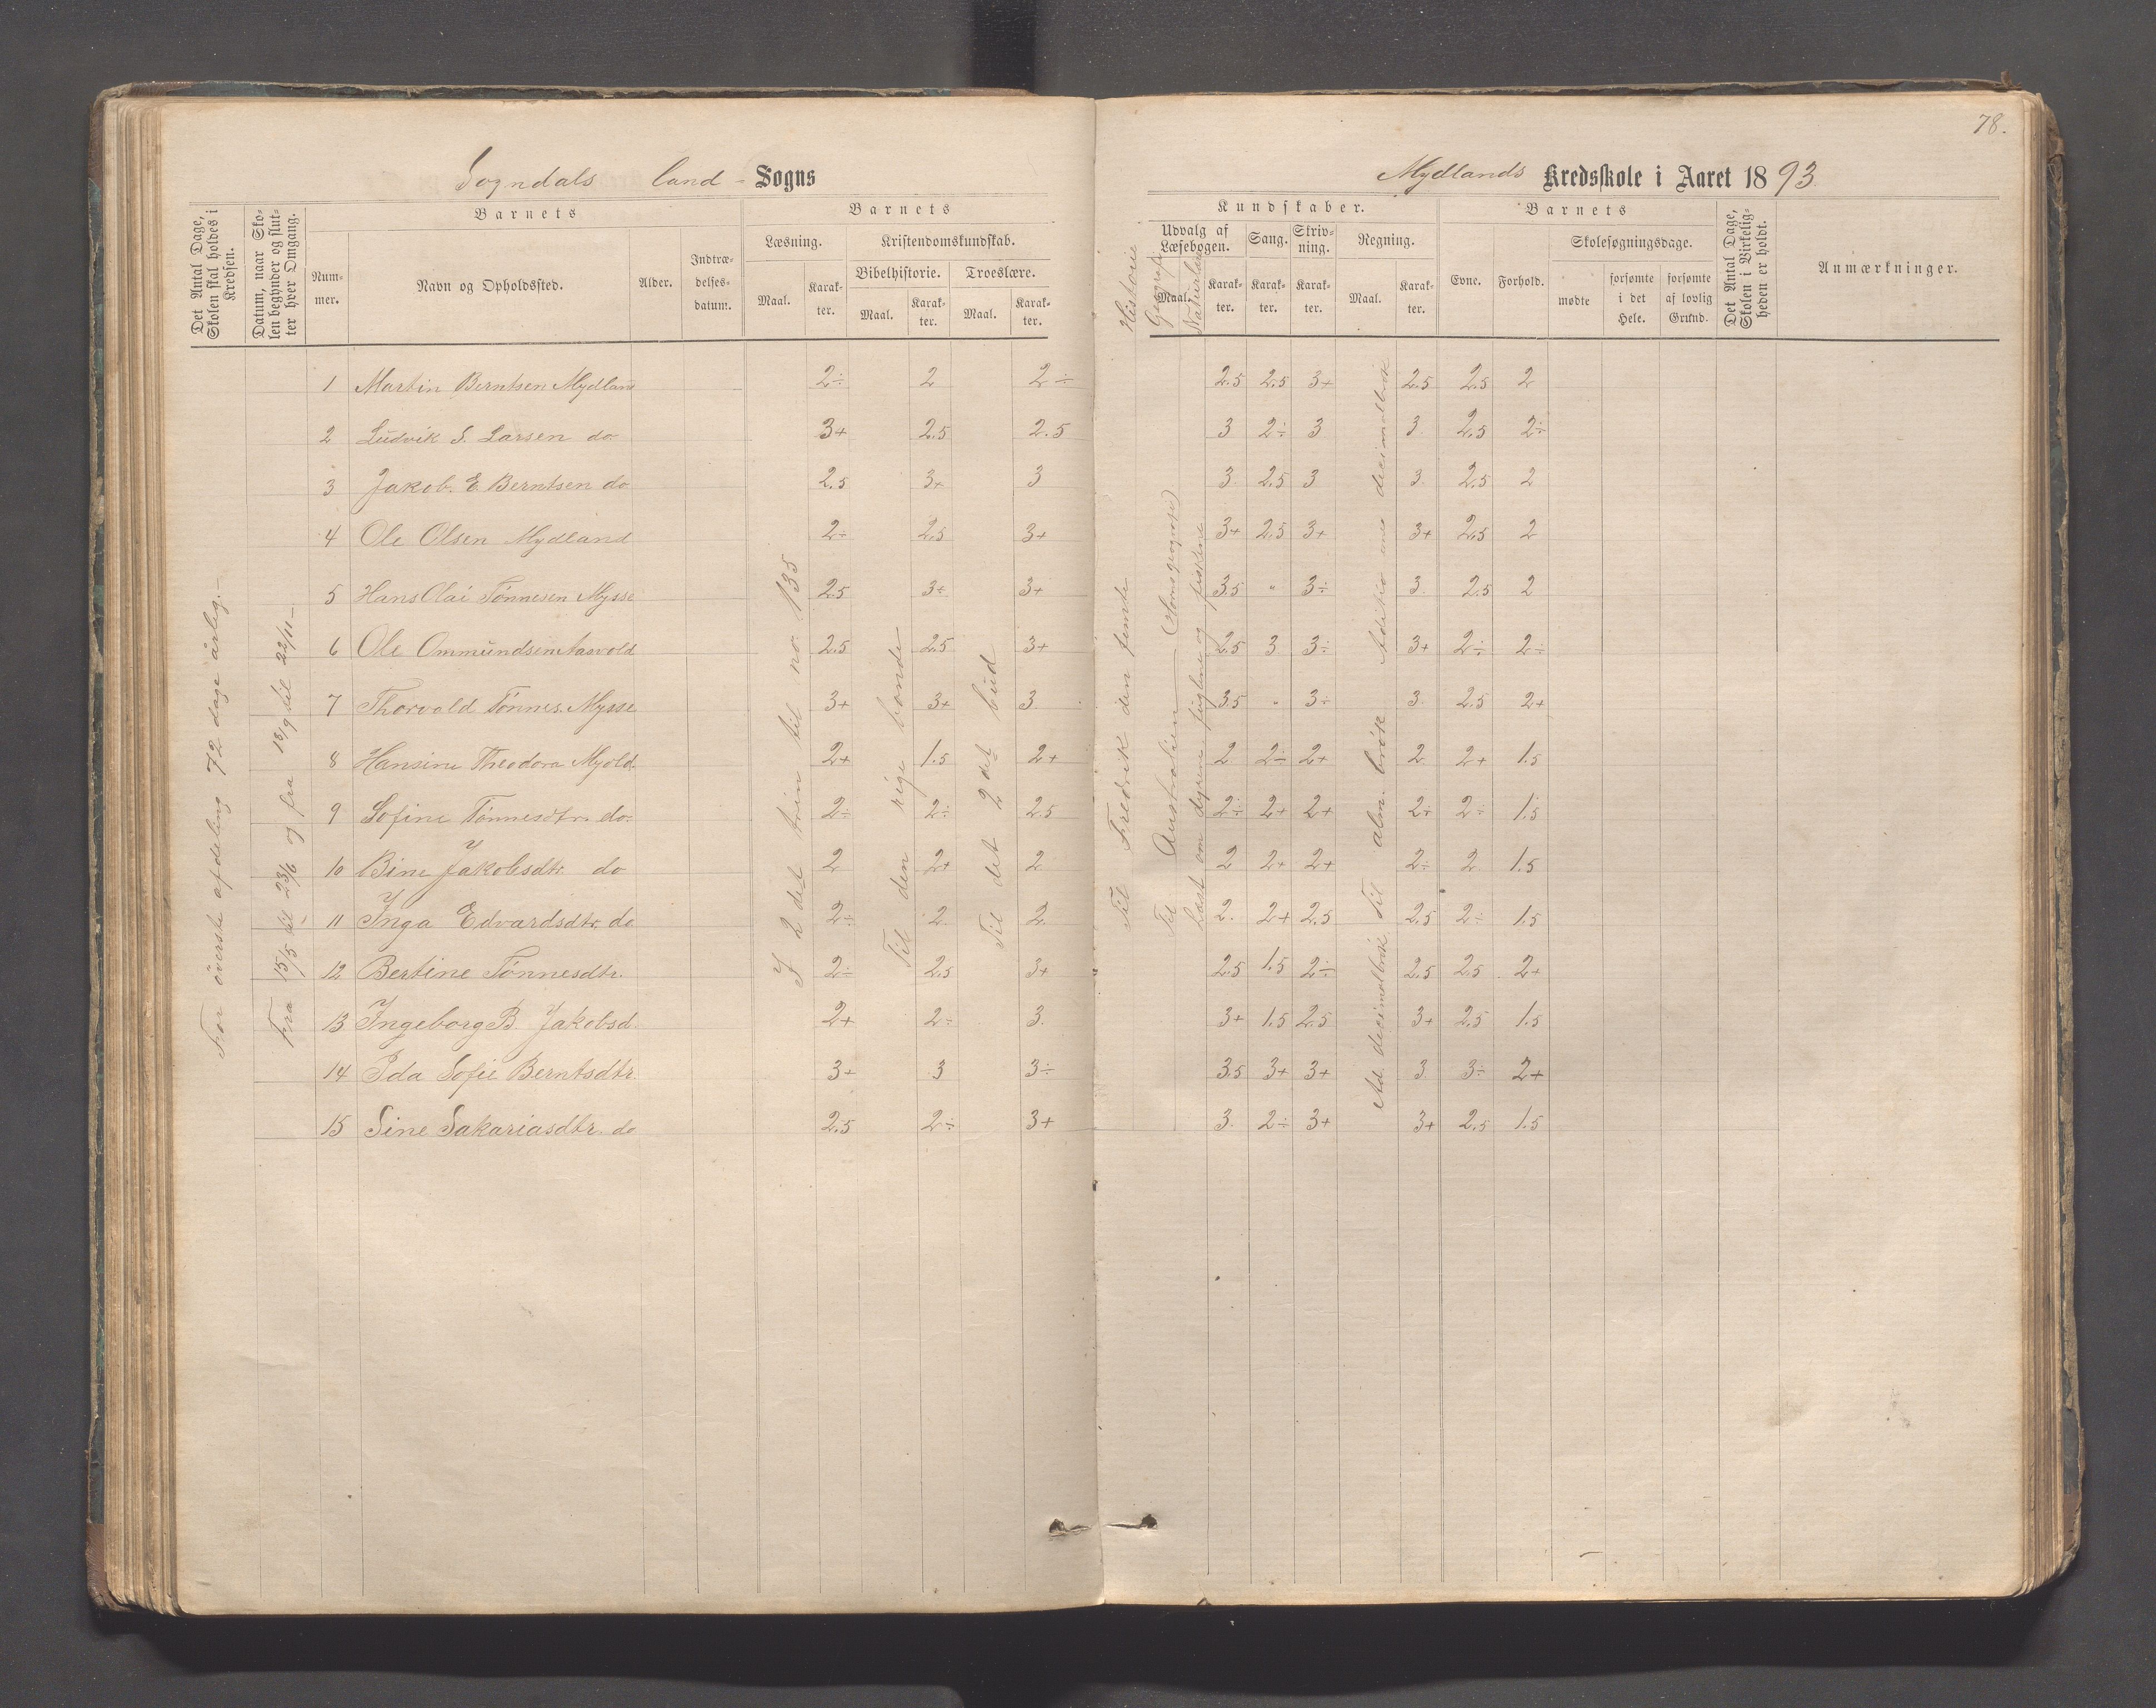 78.
Sogndals land - Sogns
Mydlands Kredsskole i Aaret 1893
Det Antal Dage, Skolen skal holdes i Kredsen.
Datum, naar Skolen begynder og slutter hver Omgang.
Barnets
Nummer.
Navn og Opholdssted.
Alder.
Indtrædelsesdatum.
Barnets
Læsning.
Maal.
Karakter.
Kristendomskundskab.
Bibelhistorie.
Maal.
Karakter.
Troeslære.
Maal.
Karakter.
Kundskaber.
Historie
Geografi
Naturlære
Udvalg af Læsebogen.
Maal.
Karakter.
Sang.
Karakter.
Skrivning.
Karakter.
Regning.
Maal.
Karakter.
Barnets
Evne.
Forhold.
Skolesøgningsdage.
mødte
forsømte i det Hele.
forsømte af lovlig Grund.
Det Antal Dage, Skolen i Virkeligheden er holdt.
Anmærkninger.
For överste afdeling 72 dage årlig.-
Fra 15/5 til 23/6 og fra 13/9 til 22/11 -
I 2 det trin til no. 135
Til den rige bonde
Til det 2 det bud
Til Fredrik den femte
Til Australien (Somsgeografi)
Læst om dyrene fuglene og fiskene
Ad. decimalbrök Til alm. brök Aditio med decimalbrök
1 Martin Berntsen Mydland 2÷ 2 2÷ 2.5 2.5 3+ 2.5 2.5 2
2 Ludvik S. Larsen do 3+ 2.5 2.5 3 2÷ 3 3 2.5 2÷
3 Jakob. E Berntsen do 2.5 3+ 3 3 2.5 3 3 2.5 2
4 Ole Olsen Mydland 2÷ 2.5 3+ 3+ 2.5 3+ 3+ 2.5 2
5 Hans Olai Tönnesen Mysse 2.5 3÷ 3+ 3.5 " 3÷ 3 2.5 2
6 Ole Ommundsen 2.5 2.5 3+ 2.5 3 3÷ 3+ 2÷ 2÷
7 Thorvald Tönnes. Mysse 3+ 3+ 3 3.5 " 3÷ 3 2.5 2+
8 Hansine Theodora Mydld. 2+ 1.5 2+ 2 2÷ 2+ 2 2+ 1.5
9 Sofine Tönnesdtr. do. 2÷ 2÷ 2.5 2÷ 2+ 2+ 2÷ 2÷ 1.5
10 Bine Jakobsdtr do 2 2+ 2 2 2+ 2+ 2÷ 2 1.5
11 Inga Edvardsdtr. do 2÷ 2 2 2. 2+ 2.5 2.5 2÷ 1.5
12 Bertine Tönnesdtr. 2÷ 2.5 3+ 2.5 1.5 2÷ 2.5 2.5 2+
13 Ingeborg B. Jakobsd. 2+ 2÷ 3. 3+ 1.5 2.5 3+ 2.5 1.5
14 Ida Sofie Berntsdtr. 3+ 3 3÷ 3.5 3+ 3+ 3 3÷ 2+
15 Sine Sakariasdtr. do 2.5 2÷ 3+ 3. 2÷ 3+ 3+ 2.5 1.5